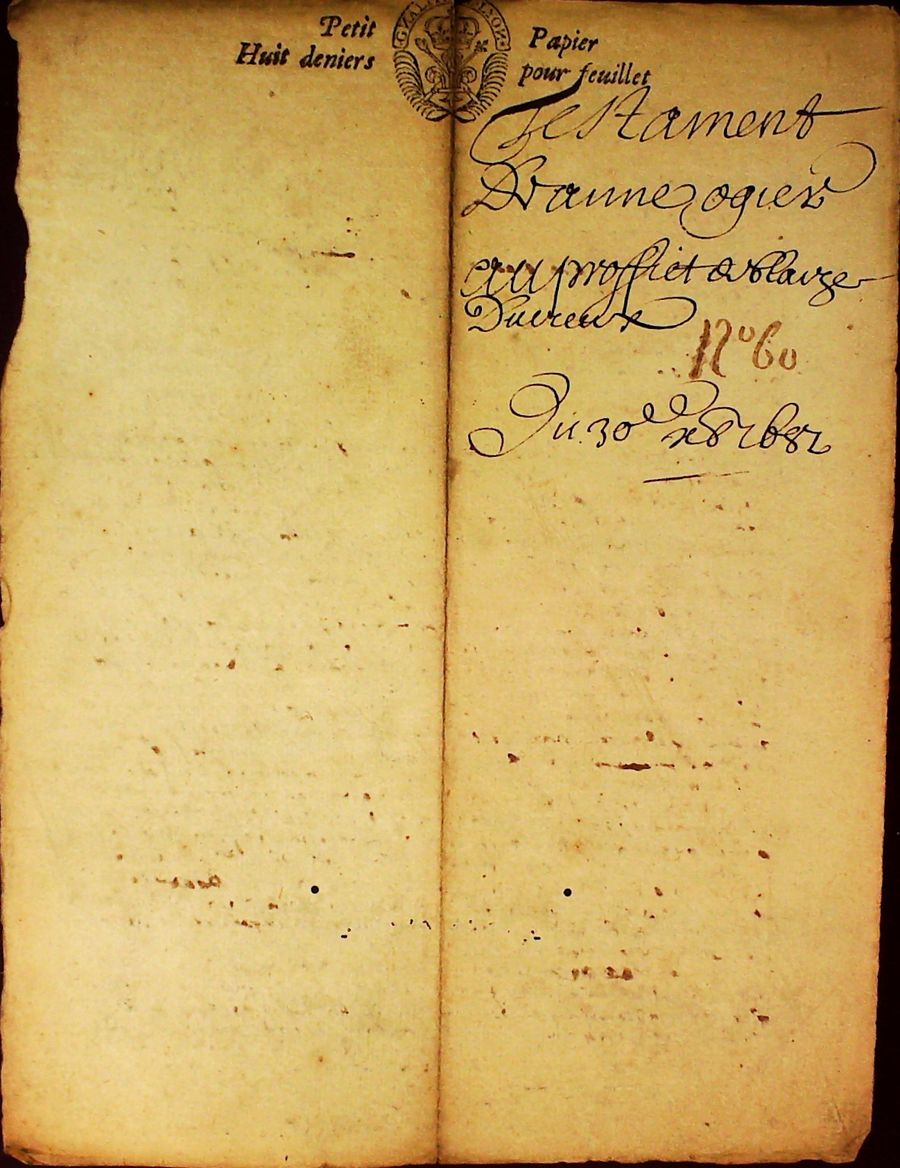 Petit Papier
Huit deniers pour feuillet
Testament
D'anne ogier
au proffict de blaize
Ducreux
N° 60
Du 30e 1682